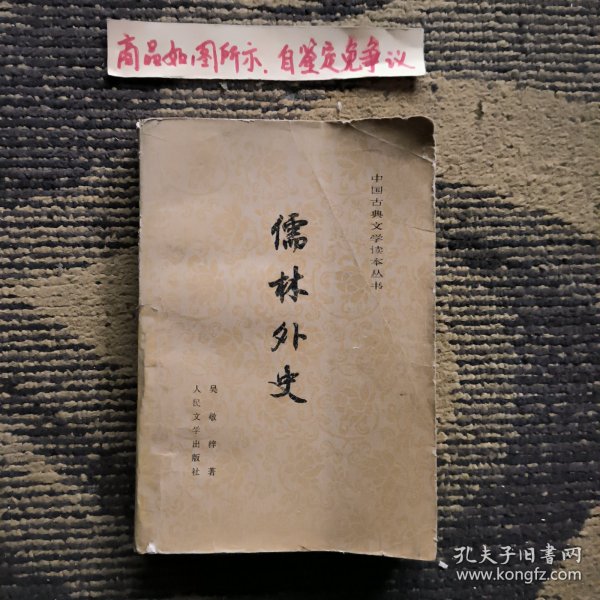 商品如图所示，自鉴定免争议
中国古典文学读本丛书
儒林外史
吴敬梓著
人民文学出版社
孔夫子旧書网
www.kongfz.com